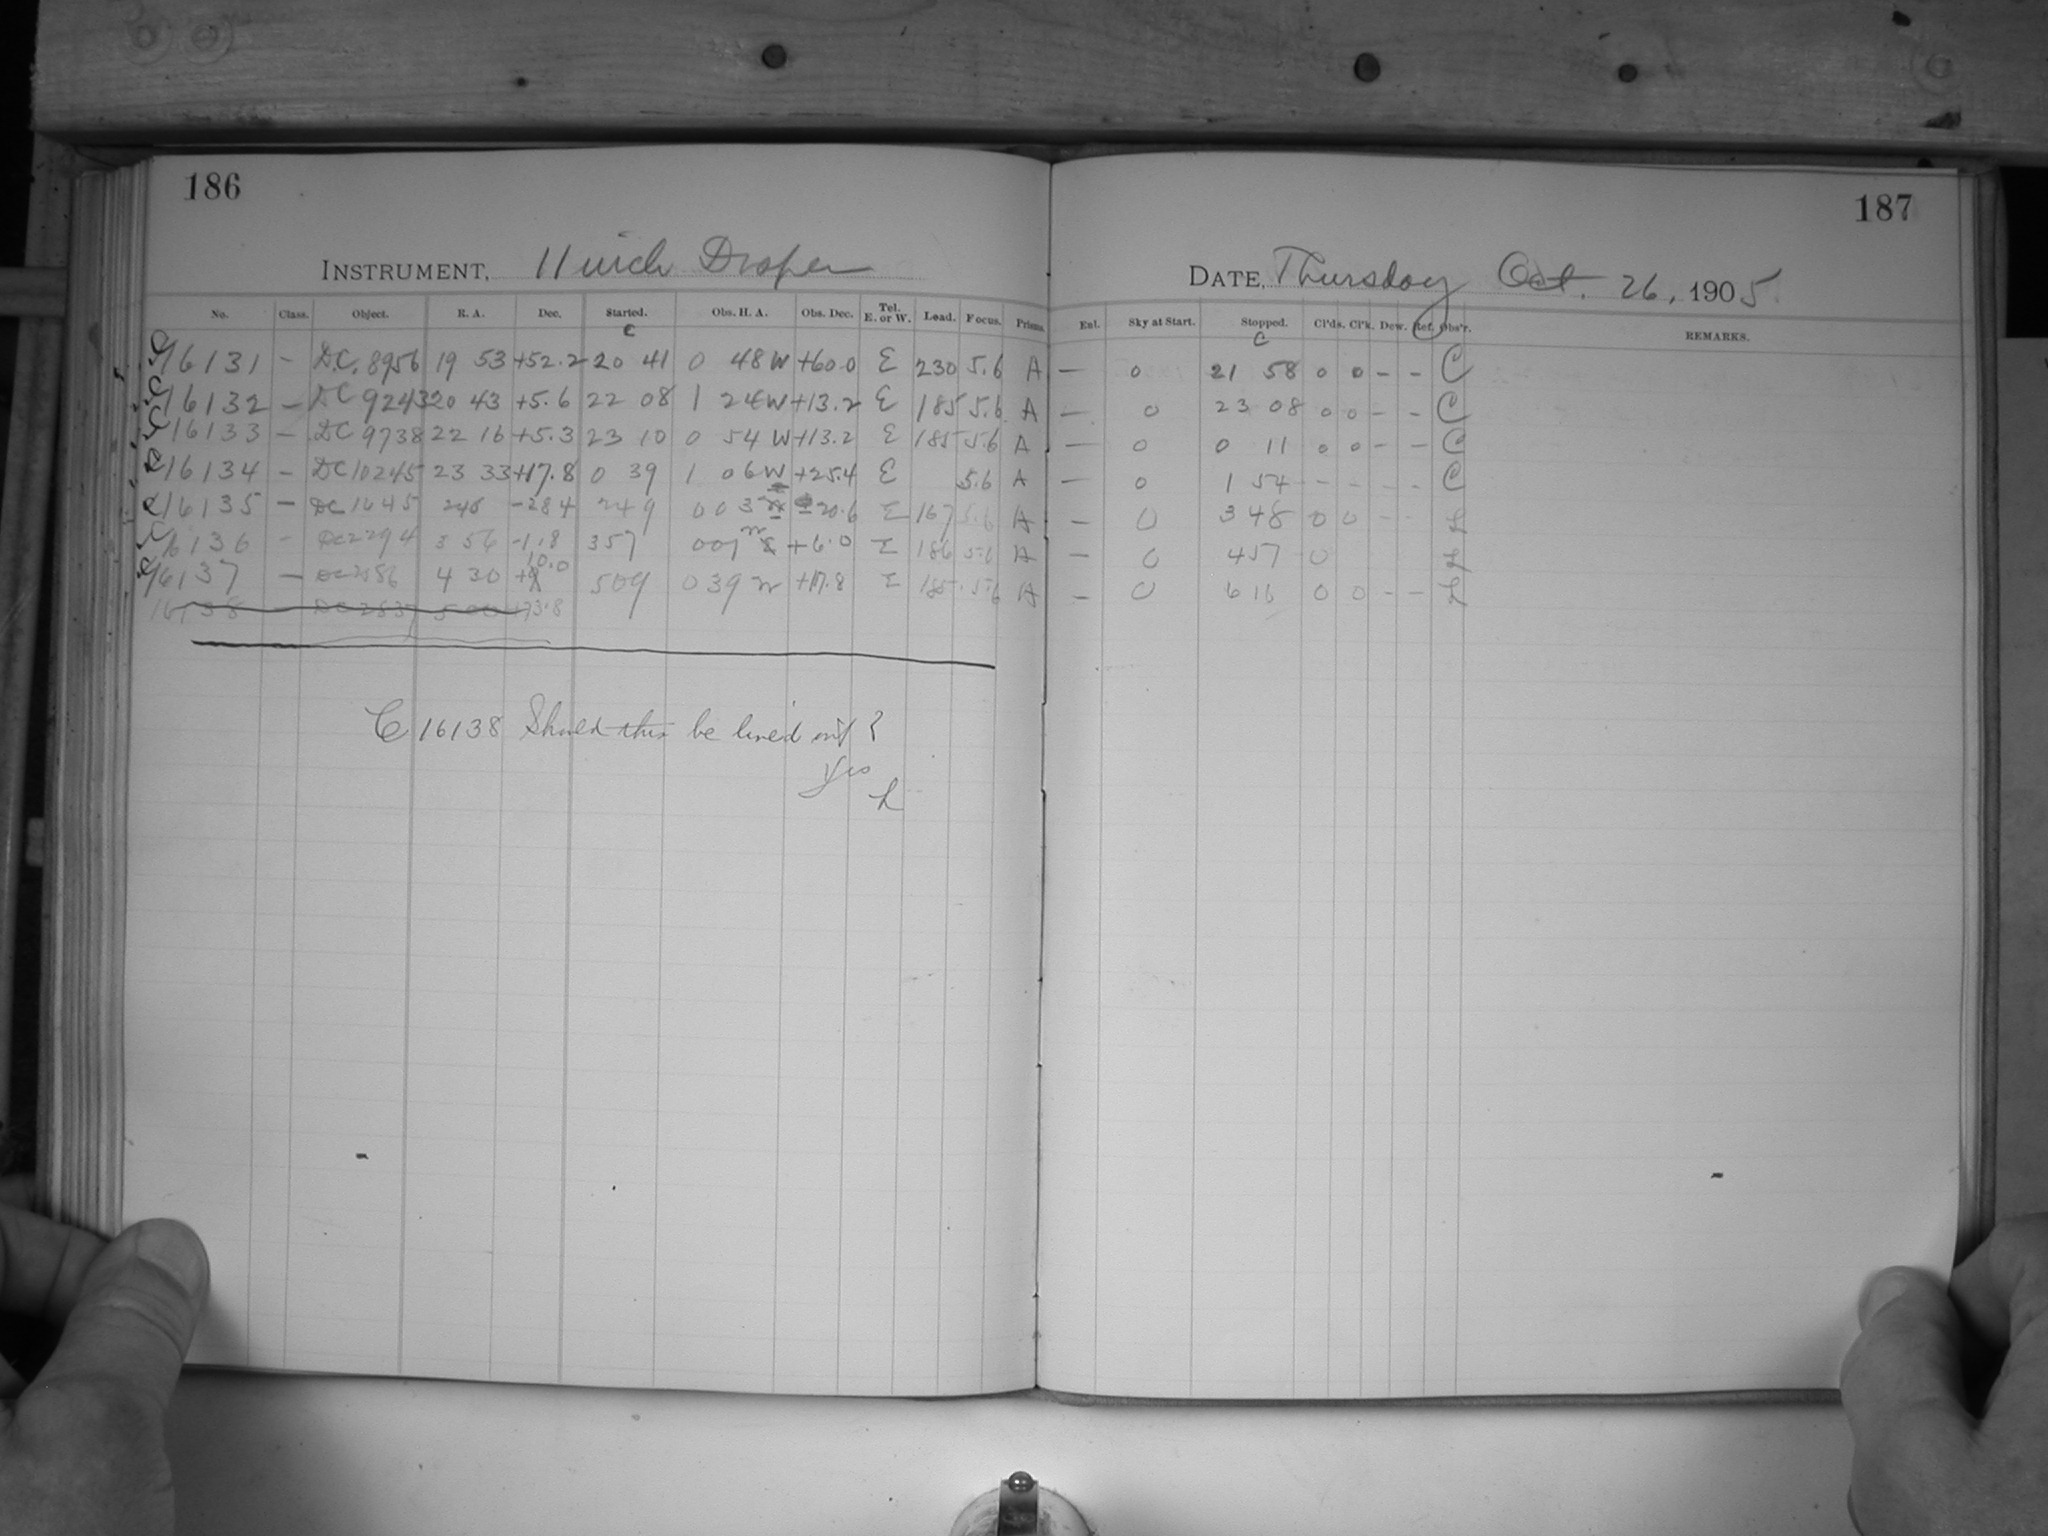 186
187
INSTRUMENT, 11 inch Draper
DATE, Thursday Oct. 26, 1905
No. Class. Object. R. A. Dec. Started. Obs. H. A. Obs. Dec. Tel. E. or W. Lead. Focus. Prisms. Enl. Sky at Start. Stopped. Cl'ds. Cl'k. Dew. Ref. Obs'r. REMARKS.
C C
16131 – D.C. 8956 19 53 +52.2 20 41 0 48 W +60.0 E 230 5.6 A — 0 21 58 0 0 - - C
16132 – DC 9243 20 43 +5.6 22 08 1 24 W +13.2 E 185 5.6 A — 0 23 08 0 0 - - C
16133 – DC 9738 22 16 +5.3 23 10 0 54 W +13.2 E 185 5.6 A — 0 0 11 0 0 - - C
16134 – DC 10245 23 33 +17.8 0 39 1 06 W +25.4 E 5.6 A – 0 1 54 - - - - C
16135 – DC 1645 246 -28.4 249 003 20.6 E 167 5.6 A – 0 3 48 0 0 - -
16136 - DC 2294 3 56 -1.8 357 001 +6.0 E 186 5.6 A — 0 457 0
16137 – 4 30 10.0 509 039 w +17.8 E 185 5.6 A – 0 616 0 0 - -
16138 – DC 2837 500 +73.8
C 16138 Should this be lined out?
Yes
L